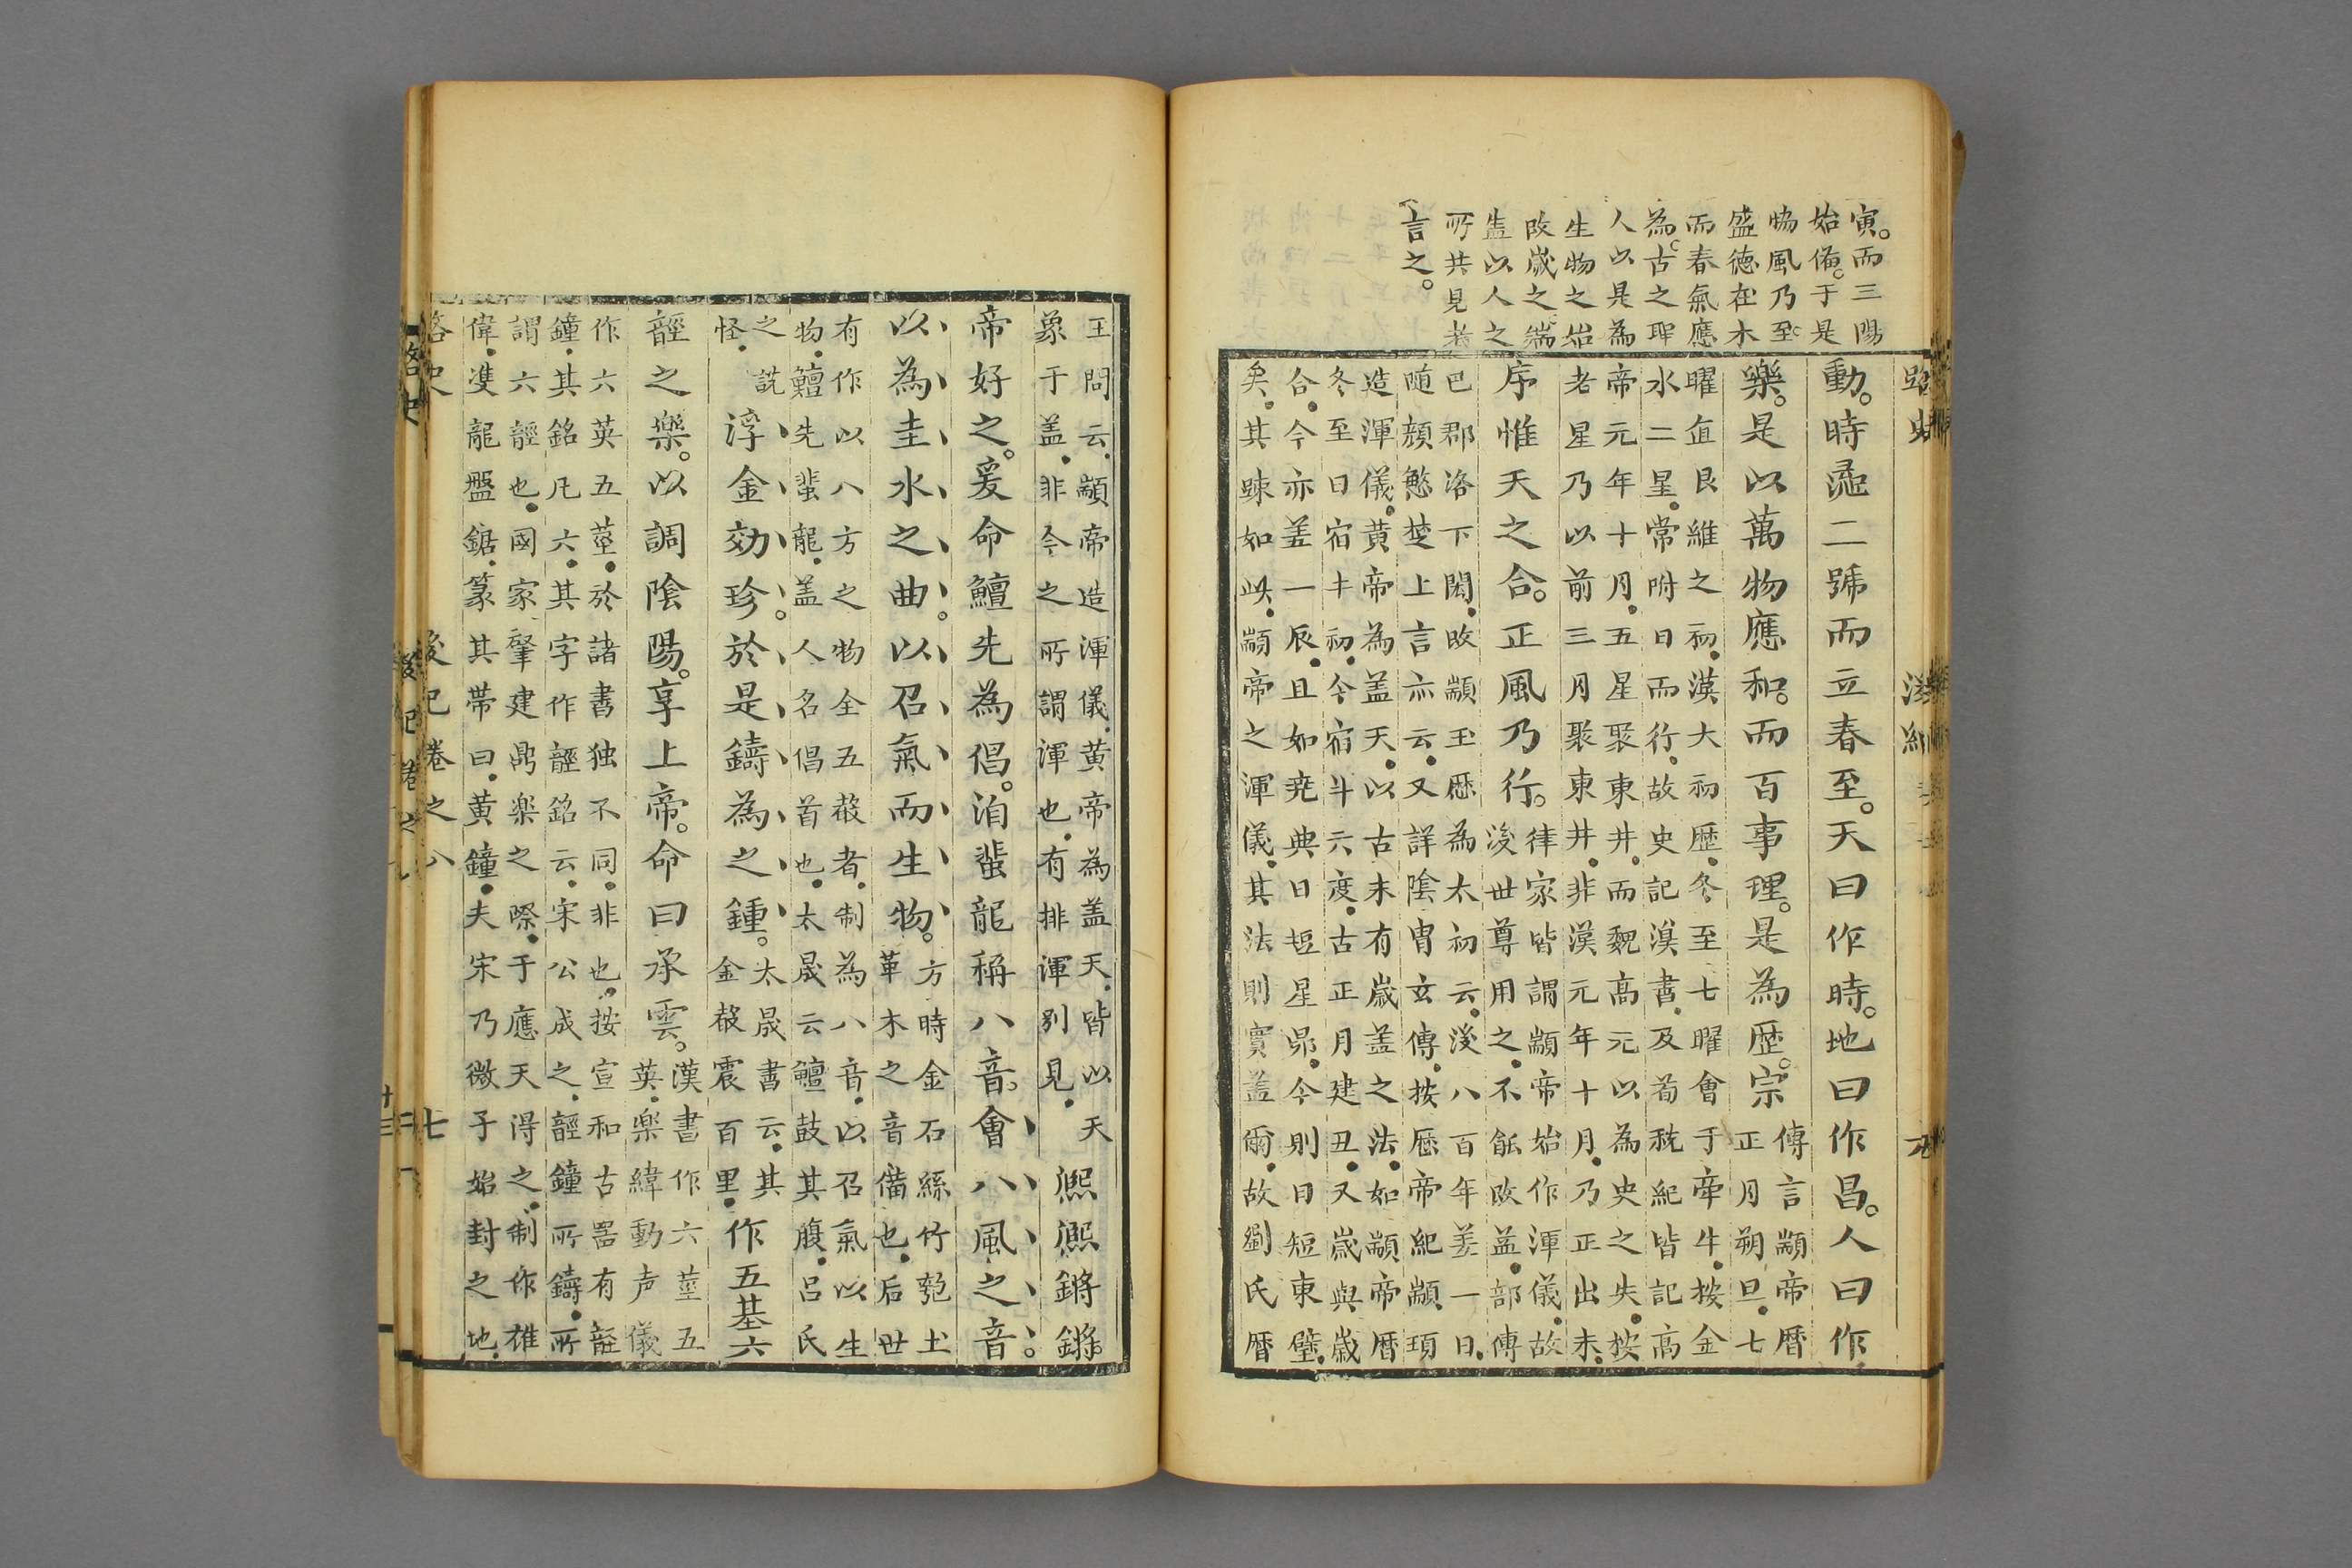 寅。而三陽
始備。于是
物風乃至。
盛德在木
而春氣應
為。古之聖
人以是為
生物之始
改歲之端
蓋以人之
所共見者
言之。
路史
動。時蒞二號而立春至。天曰作時。地曰作昌。人曰作
樂。是以萬物應和。而百事理。是為歷。宗
傳言顓帝曆
正月朔旦。七
曜直艮維之初。漢大初歷。冬至七曜會于牽牛。按金
水二星。常附日而行。故史記漢書。及荀稅紀皆記高
帝元年十月。五星聚東井。而魏高元以為史之失。按
老星乃以前三月聚東井。非漢元年十月。乃正出未。
序惟天之合。正風乃行。
律家皆謂顓帝始作渾儀。故
後世尊用之。不能改益。部傳
巴郡洛下閎。改顓玉歷為太初云。後八百年差一日。
随顏慜楚上言亦云。又詳陰冑玄傳。按歷帝紀顓頊
造渾儀。黄帝為盖天。以古未有歲盖之法。如顓帝曆
冬至日宿斗初。今宿斗六度。古正月建丑。又歲與歲
合。今亦差一辰。且如堯典日短星昴。今則日短東壁。
矣。其踈如此。顓帝之渾儀。其法則實盖爾。故劉氏曆
王問云。顓帝造渾儀。黄帝為盖天。皆以天
象于盖。非今之所謂渾也。有排渾别見。
熈熈鏘鏘。
帝好之。爰命鱓先為倡。洎蜚龍稱八音。會八風之音。
以為圭水之曲。以召氣而生物。
方時金石絲竹匏土
革木之音備也。后世
有作以八方之物全五𣪊者。制為八音。以召氣以生
物。鱓先蜚龍。盖人名倡首也。太晟云鱓鼓其腹。呂氏
之説
怪。
浮金効珍。於是鑄為之鍾。
太晟書云。其
金𣪊震百里。
作五基六
䪫之樂。以調陰陽。享上帝。命曰承雲。
漢書作六莖五
英。楽緯動声儀
作六英五莖。於諸書独不同。非也。按宣和古噐有䪫
鐘。其銘凡六。其字作䪫銘云。宋公成之。䪫鐘所鑄。所
謂六䪫也。國家肇建鼎楽之際。于應天得之。制作雄
偉。雙龍盤鋸。篆其帯曰。黄鐘。夫宋乃微子始封之地。
路史 後紀卷之八 七